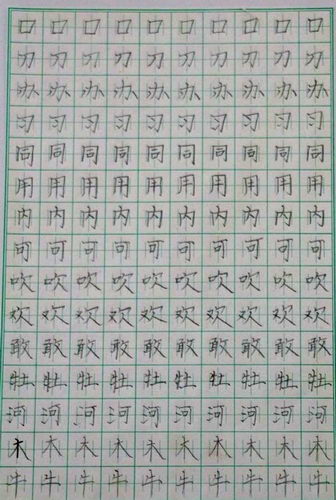 口口口口口口口口口口
刀刀刀刀刀刀刀刀刀刀
办办办办办办办办办办
习习习习习习习习习习
同同同同同同同同同同
用用用用用用用用用用
内内内内内内内内内内
可可可可可可可可可可
吹吹吹吹吹吹吹吹吹吹
欢欢欢欢欢欢欢欢欢欢
敢敢敢敢敢敢敢敢敢敢
牡牡牡牡牡牡牡牡牡牡
河河河河河河河河河河
木木木木木木木木木木
牛牛牛牛牛牛牛牛牛牛